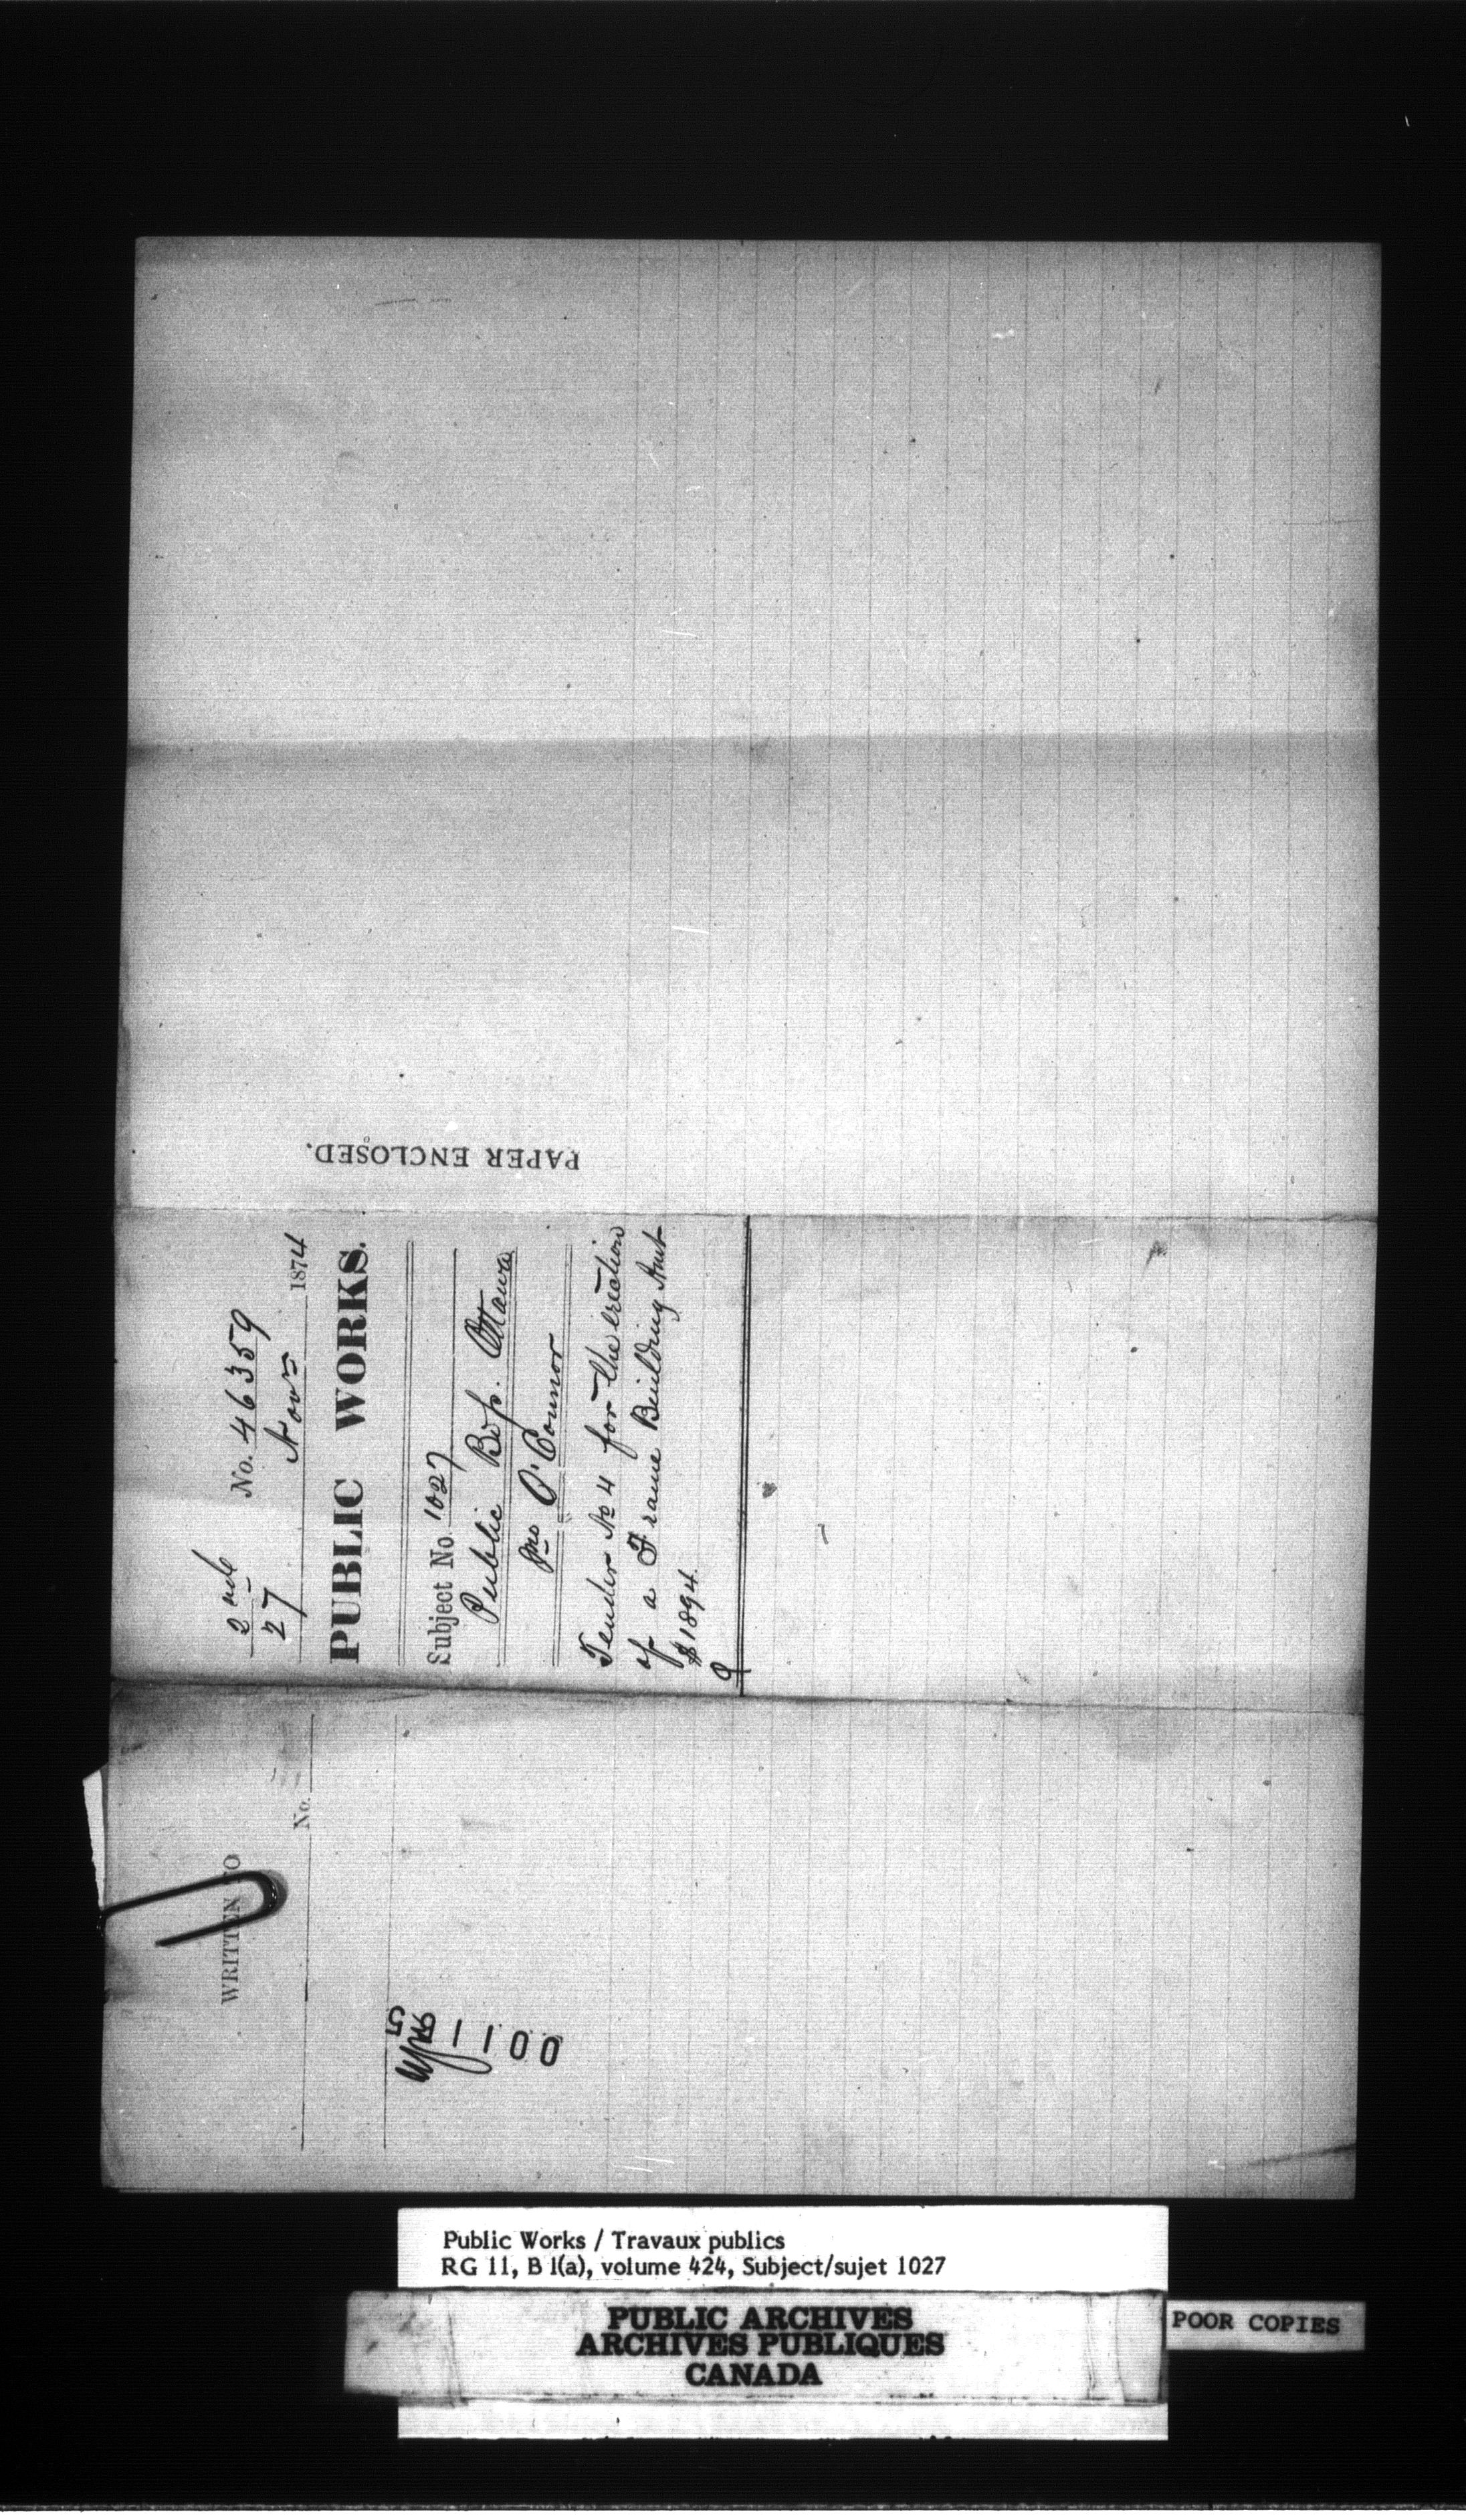 2nd No. 46359
27 Novr 1874
PUBLIC WORKS.
Subject No. 1027
Public Bdgs. Ottawa
Jno O'Connor
Tender No 4 for the erection
of a Frame Building Amt
$1894.
PAPER ENCLOSED.
WRITTEN
No.
0011
5
Public Works / Travaux publics
RG 11, B 1(a), volume 424, Subject/sujet 1027
PUBLIC ARCHIVES
ARCHIVES PUBLIQUES
CANADA
POOR COPIES